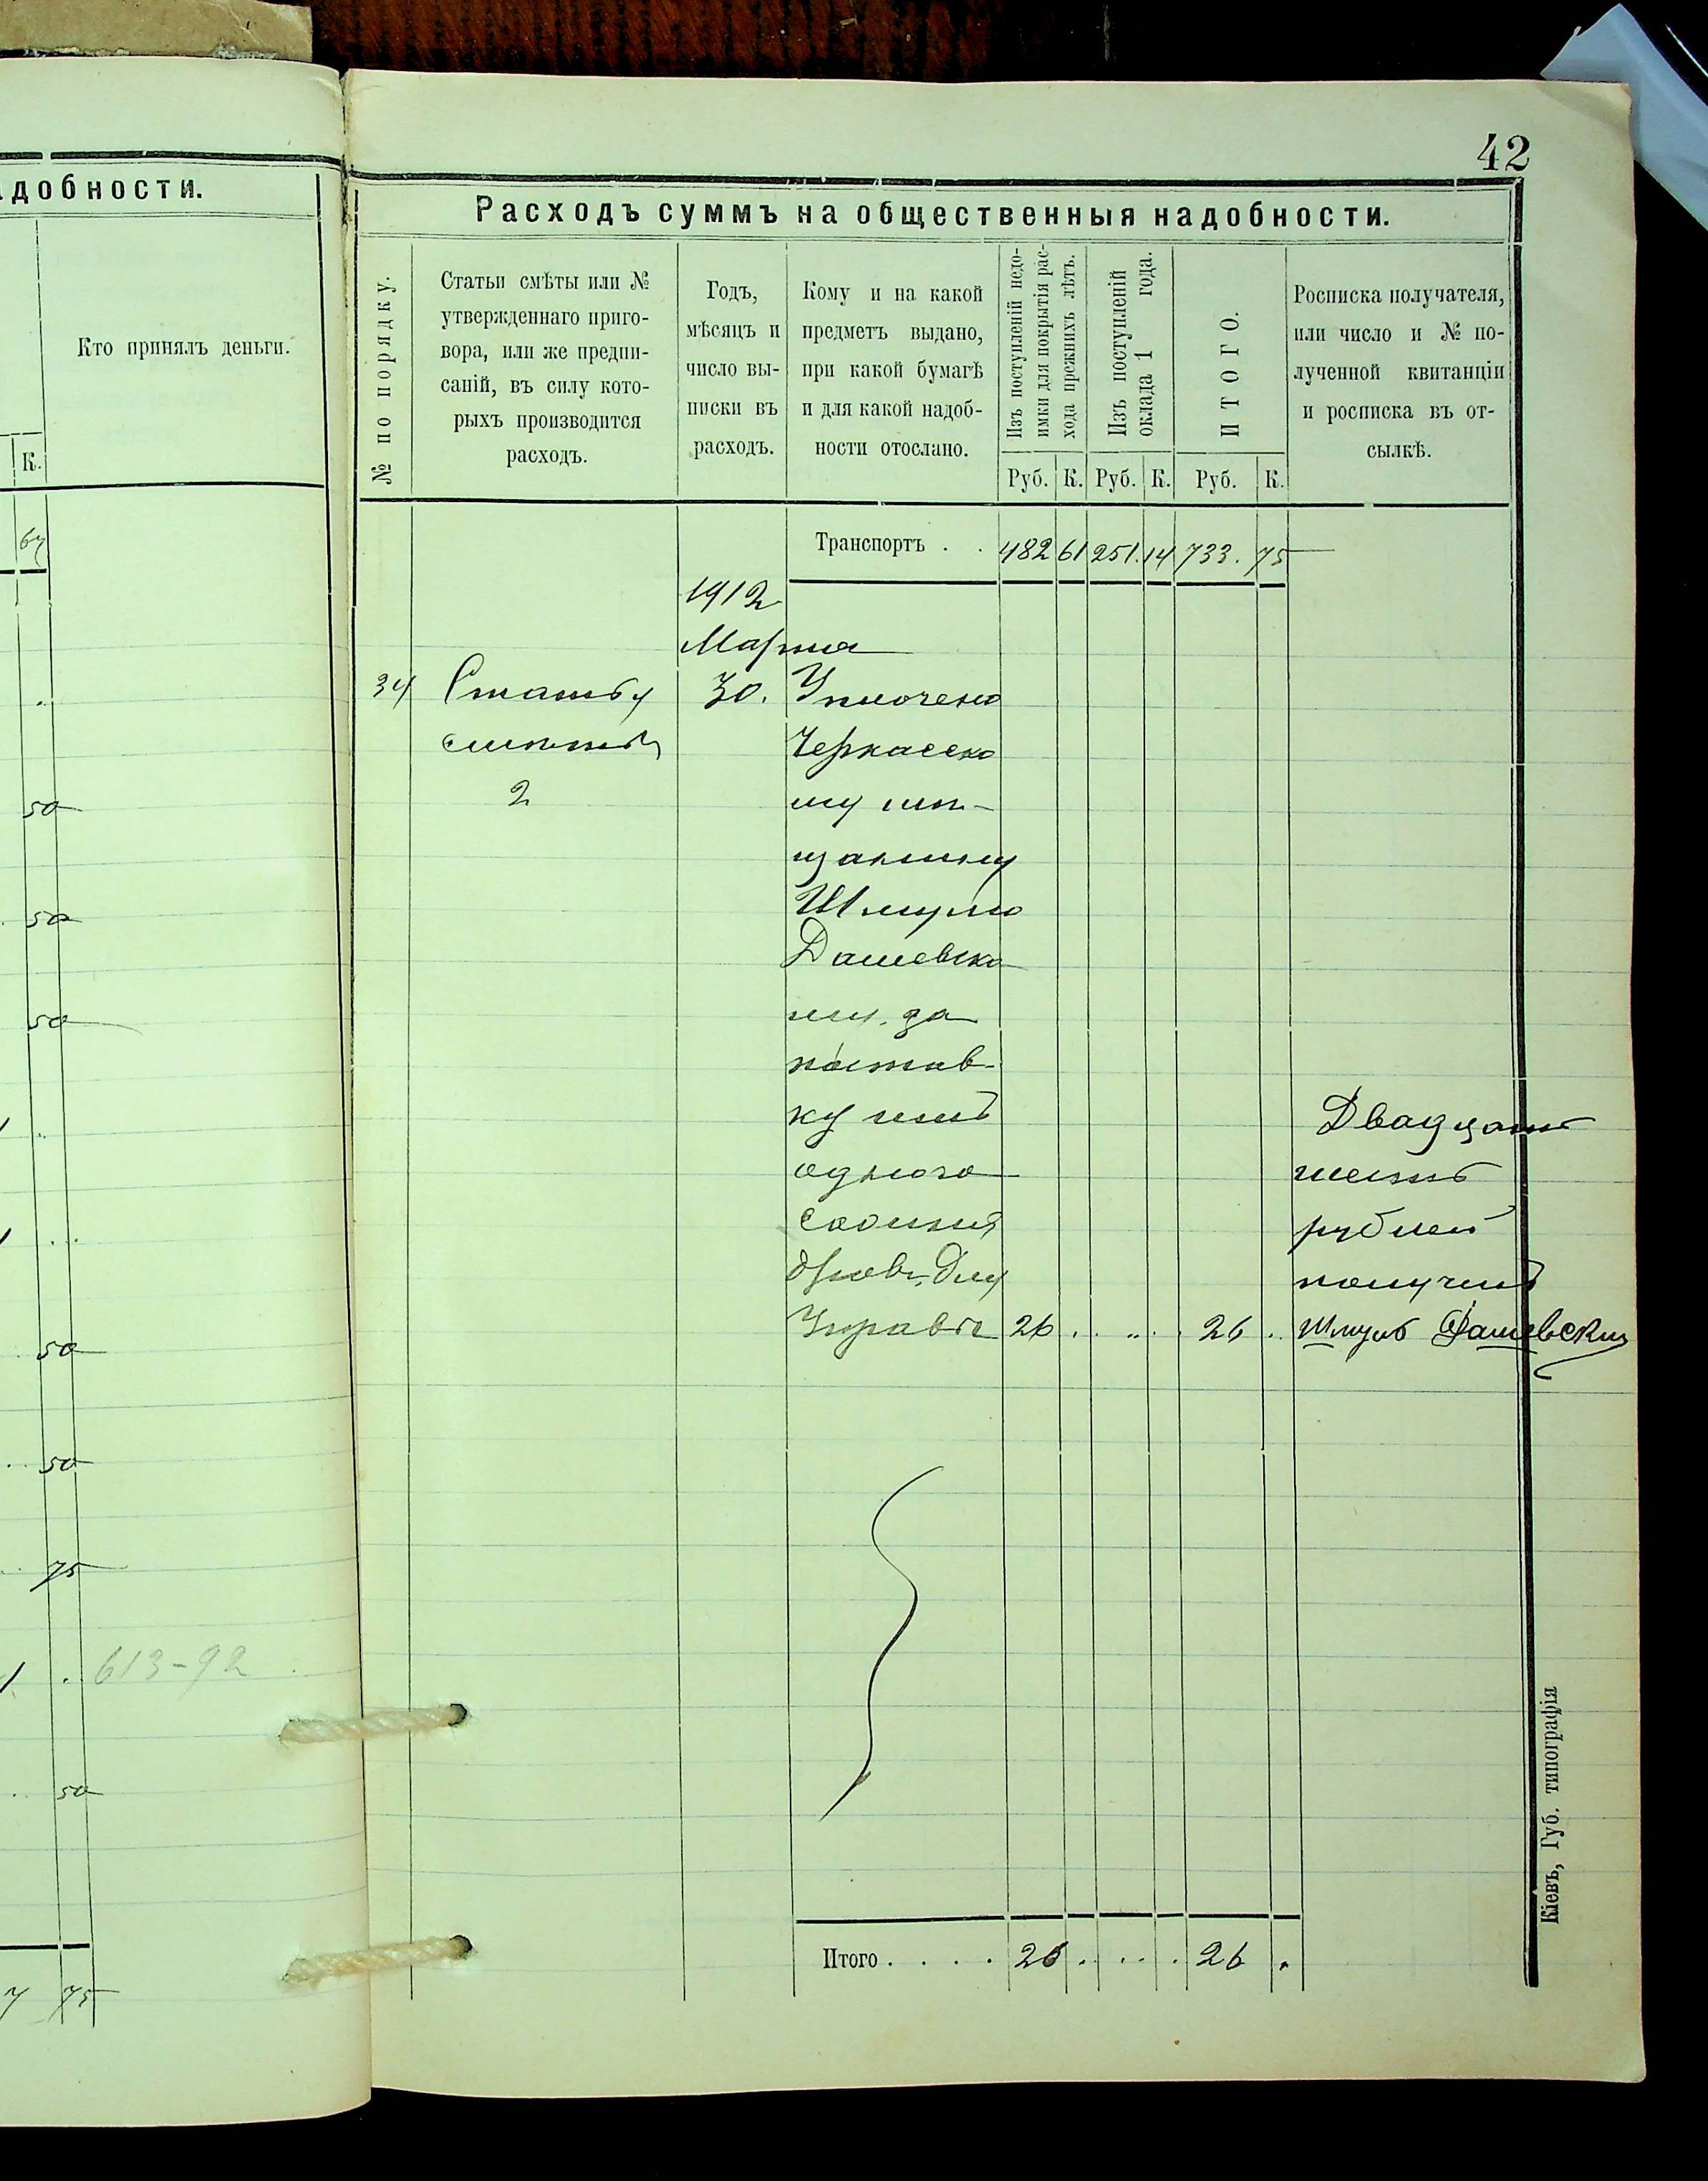 адобности.
Кто принялъ деньги.
К.
67
50
50
50
50
50
75
613-92
50
75
42
Расходъ суммъ на общественныя надобности.
№ по порядку.
Статьи смѣты или №
утвержденнаго приго-
вора, или же предпи-
саній, въ силу кото-
рыхъ производится
расходъ.
Годъ,
мѣсяцъ и
число вы-
писки въ
расходъ.
Кому и на какой
предметъ выдано,
при какой бумагѣ
и для какой надоб-
ности отослано.
Изъ поступленій недо-
имки для покрытія рас-
хода прежнихъ лѣтъ.
Изъ поступленій
оклада 1 года.
ИТОГО.
Росписка получателя,
или число и № по-
лученной квитанціи
и росписка въ от-
сылкѣ.
Руб. К. Руб. К. Руб. К.
Транспортъ . . 482 61 251. 14 733. 75
1912
Марта
34 Статья 30. Уплочено
смѣты Черкасско
2 му мѣ-
щанину
Шмулю
Дашевско
му за
постав-
ку имъ
одного
дровъ для
Управы 26 . . „ . . 26 . .
Двадцать
шесть
рублей
получилъ
Шмуль Дашевский
Итого . . . . 26 . . . . 26 .
Кіевъ, Губ. типографія